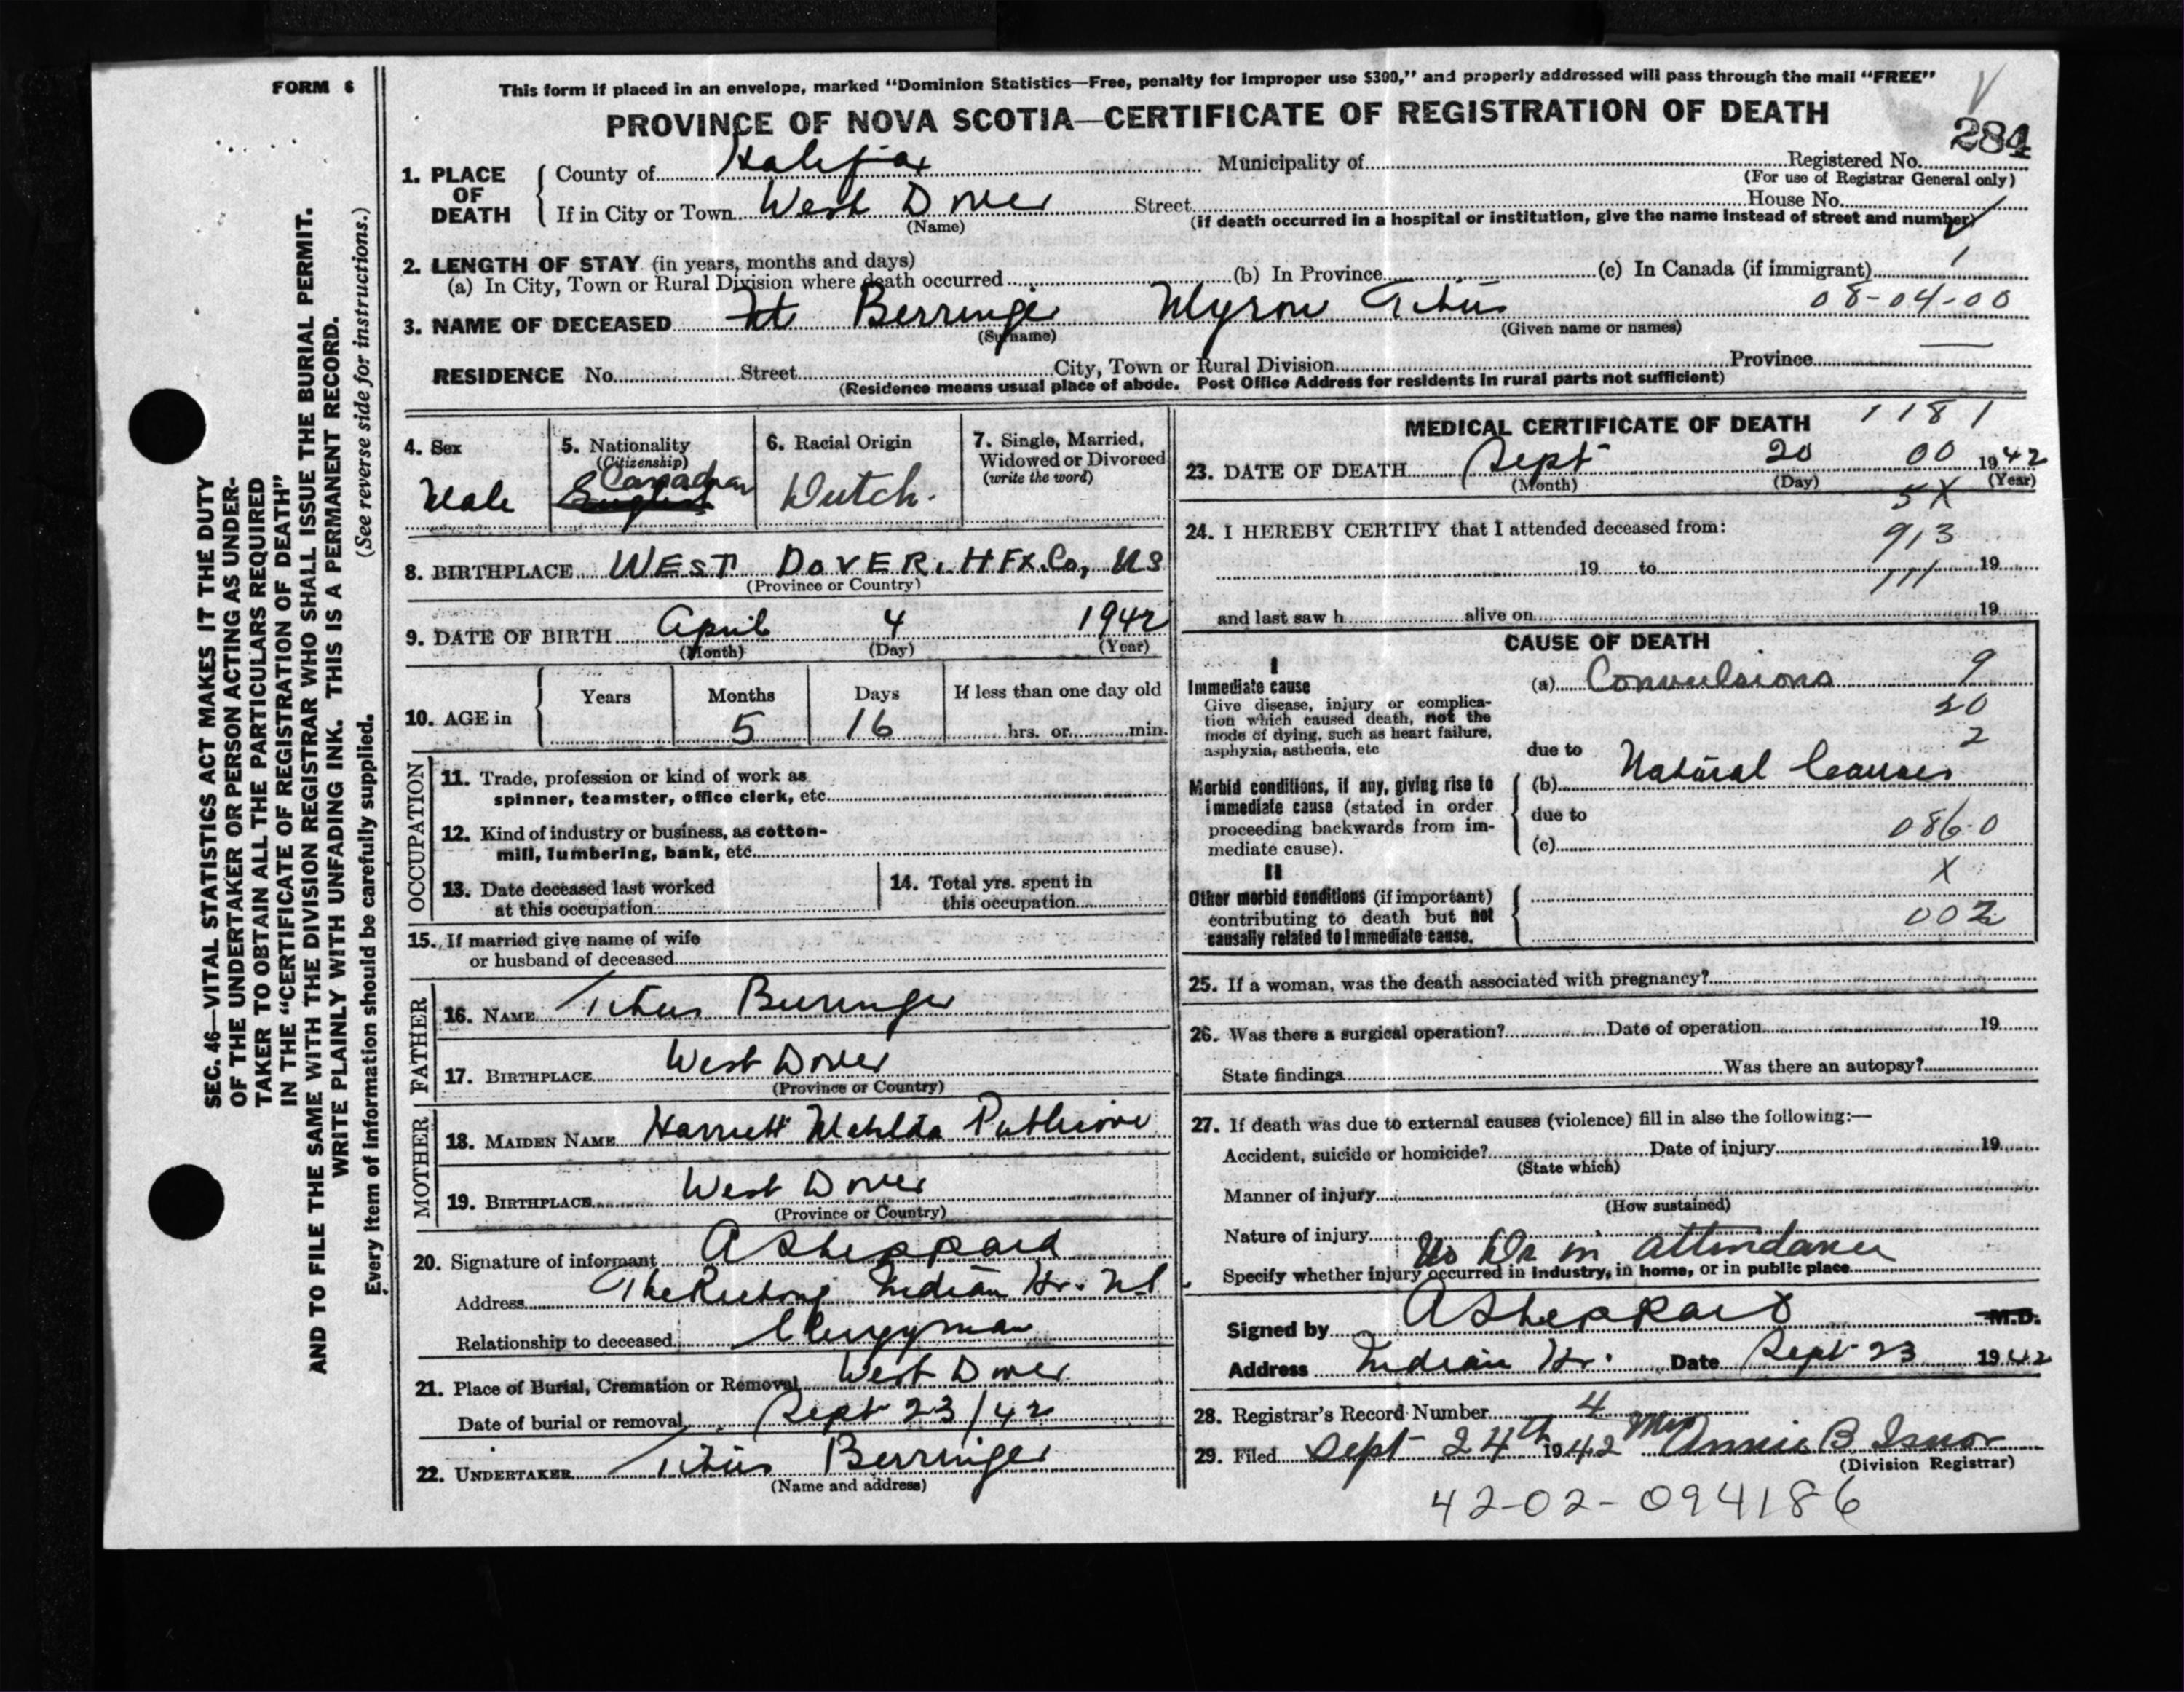 FORM 6
This form if placed in an envelope, marked “Dominion Statistics—Free, penalty for improper use $300,” and properly addressed will pass through the mail “FREE”
PROVINCE OF NOVA SCOTIA—CERTIFICATE OF REGISTRATION OF DEATH
284
1. PLACE OF DEATH
County of Halifax Municipality of Registered No.
(For use of Registrar General only)
If in City or Town West Dover Street House No.
(Name) (If death occurred in a hospital or institution, give the name instead of street and number)
2. LENGTH OF STAY (in years, months and days)
(a) In City, Town or Rural Division where death occurred (b) In Province (c) In Canada (if immigrant) 1
08-04-00
3. NAME OF DECEASED Berringer Myron Titus
(Surname) (Given name or names)
RESIDENCE No. Street City, Town or Rural Division Province
(Residence means usual place of abode. Post Office Address for residents in rural parts not sufficient)
4. Sex
Male
5. Nationality
(Citizenship)
Canadian
English
6. Racial Origin
Dutch.
7. Single, Married,
Widowed or Divorced
(write the word)
8. BIRTHPLACE WEST DOVER. HFX. Co, NS
(Province or Country)
9. DATE OF BIRTH April 4 1942
(Month) (Day) (Year)
10. AGE in
Years Months Days If less than one day old
5 16 hrs. or min.
OCCUPATION
11. Trade, profession or kind of work as
spinner, teamster, office clerk, etc.
12. Kind of industry or business, as cotton-
mill, lumbering, bank, etc.
13. Date deceased last worked
at this occupation
14. Total yrs. spent in
this occupation
15. If married give name of wife
or husband of deceased
FATHER
16. NAME Titus Berringer
17. BIRTHPLACE West Dover
(Province or Country)
MOTHER
18. MAIDEN NAME Harriett Matilda Publicover
19. BIRTHPLACE West Dover
(Province or Country)
20. Signature of informant A Sheppard
Address The Rectory Indian Hr. N.S
Relationship to deceased Clergyman
21. Place of Burial, Cremation or Removal West Dover
Date of burial or removal Sept 23/42
22. UNDERTAKER Titus Berringer
(Name and address)
MEDICAL CERTIFICATE OF DEATH 1181
23. DATE OF DEATH Sept 20 00 1942
(Month) (Day) (Year)
5X
24. I HEREBY CERTIFY that I attended deceased from:
913
19 to 19
111
and last saw h alive on 19
CAUSE OF DEATH
I
Immediate cause
Give disease, injury or complica-
tion which caused death, not the
mode of dying, such as heart failure,
asphyxia, asthenia, etc
(a) Convulsions 9
20
2
due to
Morbid conditions, if any, giving rise to
immediate cause (stated in order
proceeding backwards from im-
mediate cause).
(b) Natural Causes
due to
086.0
(c)
X
II
Other morbid conditions (if important)
contributing to death but not
causally related to immediate cause.
002
25. If a woman, was the death associated with pregnancy?
26. Was there a surgical operation? Date of operation 19
State findings Was there an autopsy?
27. If death was due to external causes (violence) fill in also the following:—
Accident, suicide or homicide? Date of injury 19
(State which)
Manner of injury
(How sustained)
Nature of injury
No Dr in attendance
Specify whether injury occurred in industry, in home, or in public place
Signed by A Sheppard M.D.
Address Indian Hr. Date Sept 23 1942
28. Registrar's Record Number 4
29. Filed Sept 24th 1942 Mrs Annie B Isnor
(Division Registrar)
42-02-094186
SEC. 46—VITAL STATISTICS ACT MAKES IT THE DUTY
OF THE UNDERTAKER OR PERSON ACTING AS UNDER-
TAKER TO OBTAIN ALL THE PARTICULARS REQUIRED
IN THE “CERTIFICATE OF REGISTRATION OF DEATH”
AND TO FILE THE SAME WITH THE DIVISION REGISTRAR WHO SHALL ISSUE THE BURIAL PERMIT.
WRITE PLAINLY WITH UNFADING INK. THIS IS A PERMANENT RECORD.
Every item of information should be carefully supplied. (See reverse side for instructions.)